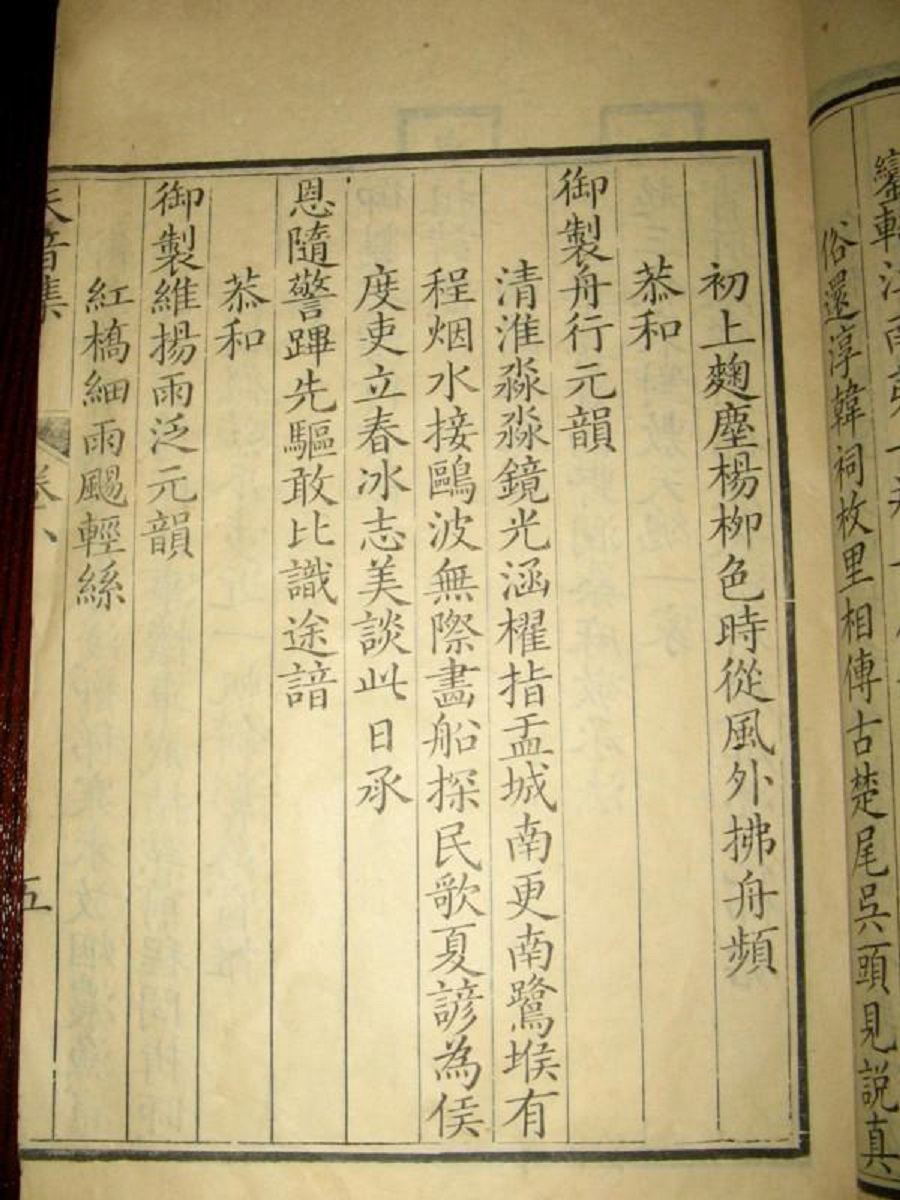 俗還淳韓祠枚里相傳古楚尾吳頭見説真
初上麴塵楊柳色時從風外拂舟頻
恭和
御製舟行元韻
清淮淼淼鏡光涵櫂指盂城南更南鷺堠有
程烟水接鷗波無際畫船探民歌夏諺為侯
度吏立春冰志美談此日承
恩隨警蹕先驅敢比識途諳
恭和
御製維揚雨泛元韻
紅橋細雨颺輕絲
音集
卷八
五